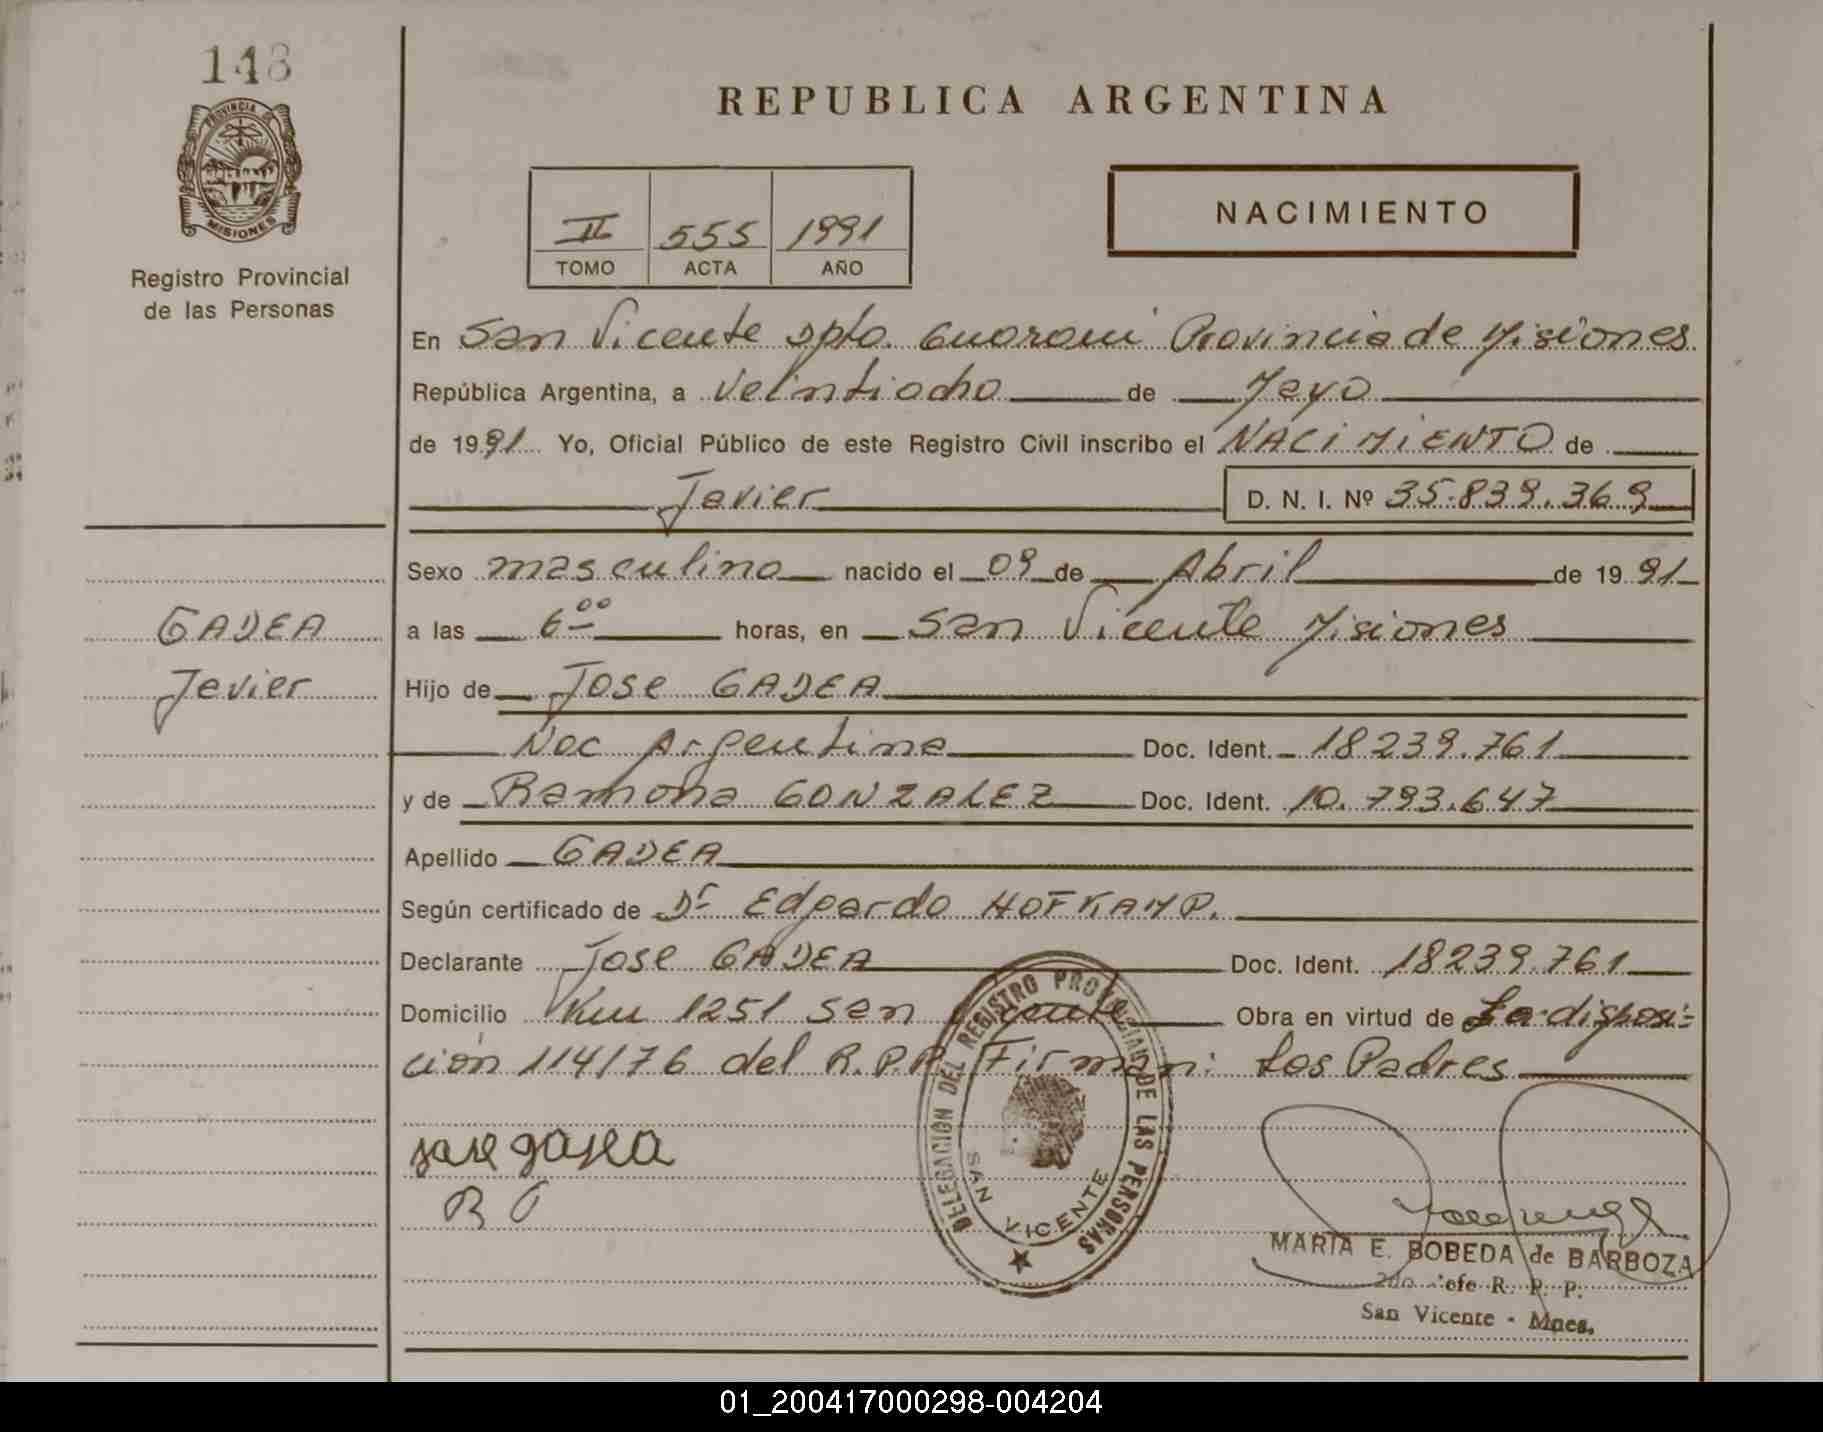 148
PROVINCIA DE
MISIONES
Registro Provincial
de las Personas
REPUBLICA ARGENTINA
II 555 1991
TOMO ACTA AÑO
NACIMIENTO
En San Vicente Dpto. Guarani Provincia de Misiones
República Argentina, a Veintiocho de Mayo
de 1991 Yo, Oficial Público de este Registro Civil inscribo el NACIMIENTO de
Javier D. N. I. Nº 35.839.369
Sexo masculino nacido el 09 de Abril de 1991
GADEA
Javier
a las 6 00 horas, en San Vicente Misiones
Hijo de Jose GADEA
Nac Argentina Doc. Ident. 18239.761
y de Ramona GONZALEZ Doc. Ident. 10.793.647
Apellido GADEA
Según certificado de Dr Edgardo HOFKAMP.
Declarante Jose GADEA Doc. Ident. 18239.761
Domicilio Km 1251 San Vicente Obra en virtud de La disposi-
ción 114/76 del R.P.P. Firman: Los Padres
jose gadea
R G
DELEGACION DEL REGISTRO PROVINCIAL DE LAS PERSONAS
SAN VICENTE
MARIA E. BOBEDA de BARBOZA
2do Jefe R. P. P.
San Vicente - Mnes.
01_200417000298-004204